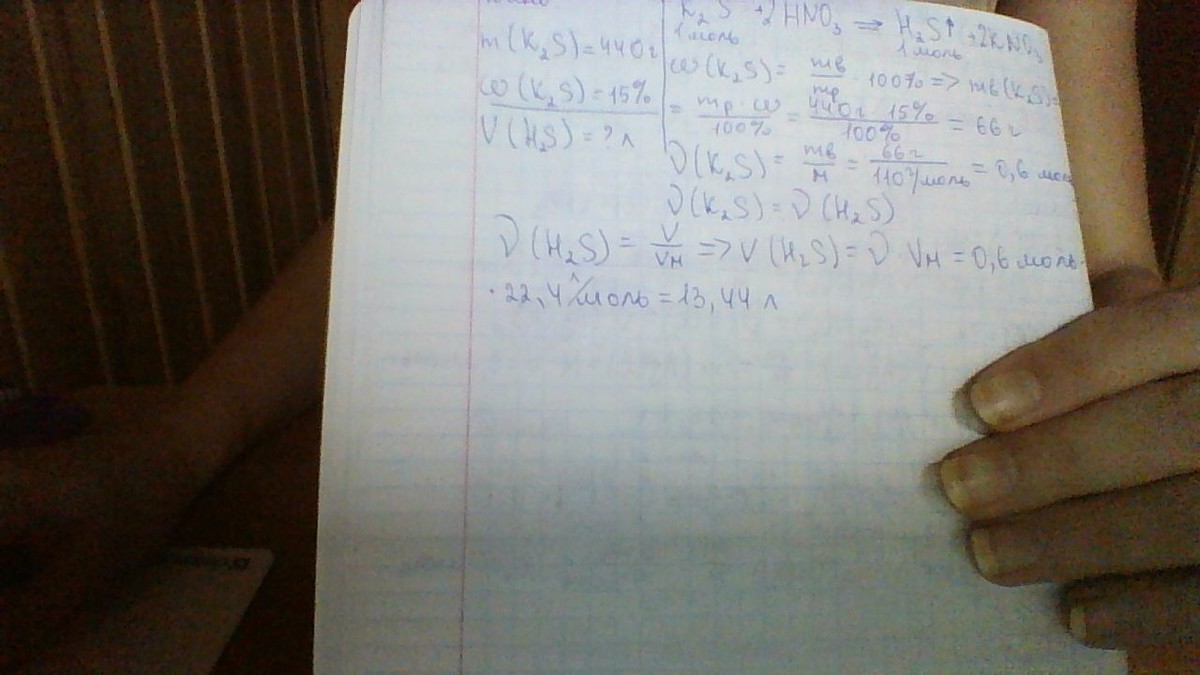 m(K₂S)=440г
ω(K₂S)=15%
V(H₂S)=?л
K₂S +2HNO₃ => H₂S↑ +2KNO₃
1моль 1моль
ω(K₂S)= mв/mр · 100% => mв(K₂S)=
= mр·ω/100% = 440г · 15%/100% = 66г
ν(K₂S) = mв/M = 66г/110г/моль = 0,6 моль
ν(K₂S) = ν(H₂S)
ν(H₂S) = V/Vм => V(H₂S) = ν Vм = 0,6 моль·
·22,4л/моль = 13,44 л